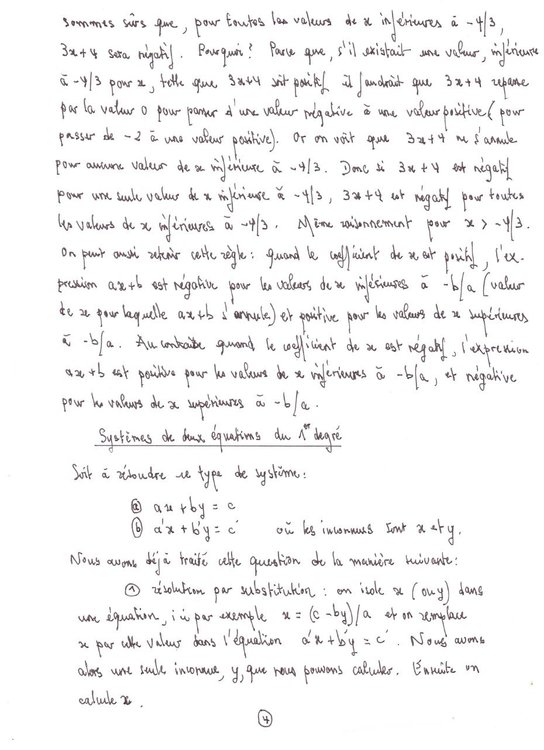 sommes sûrs que, pour toutes les valeurs de x inférieures à -4/3,
3x+4 sera négatif. Pourquoi? Parce que, s'il existait une valeur, inférieure
à -4/3 pour x, telle que 3x+4 soit positif il faudrait que 3x+4 repasse
par la valeur 0 pour passer d'une valeur négative à une valeur positive (pour
passer de -2 à une valeur positive). Or on voit que 3x+4 ne s'annule
pour aucune valeur de x inférieure à -4/3. Donc si 3x+4 est négatif
pour une seule valeur de x inférieure à -4/3, 3x+4 est négatif pour toutes
les valeurs de x inférieures à -4/3. Même raisonnement pour x > -4/3.
On peut aussi retenir cette règle: quand le coefficient de x est positif, l'ex-
pression ax+b est négative pour les valeurs de x inférieures à -b/a (valeur
de x pour laquelle ax+b s'annule) et positive pour les valeurs de x supérieures
à -b/a. Au contraire quand le coefficient de x est négatif, l'expression
ax+b est positive pour les valeurs de x inférieures à -b/a, et négative
pour les valeurs de x supérieures à -b/a.
Systèmes de deux équations du 1er degré
Soit à résoudre ce type de système:
(a) ax + by = c
(b) a'x + b'y = c' où les inconnues sont x et y.
Nous avons déjà traité cette question de la manière suivante:
(1) résolution par substitution: on isole x (ou y) dans
une équation, ici par exemple x = (c-by)/a et on remplace
x par cette valeur dans l'équation a'x + b'y = c'. Nous avons
alors une seule inconnue, y, que nous pouvons calculer. Ensuite on
calcule x.
(4)